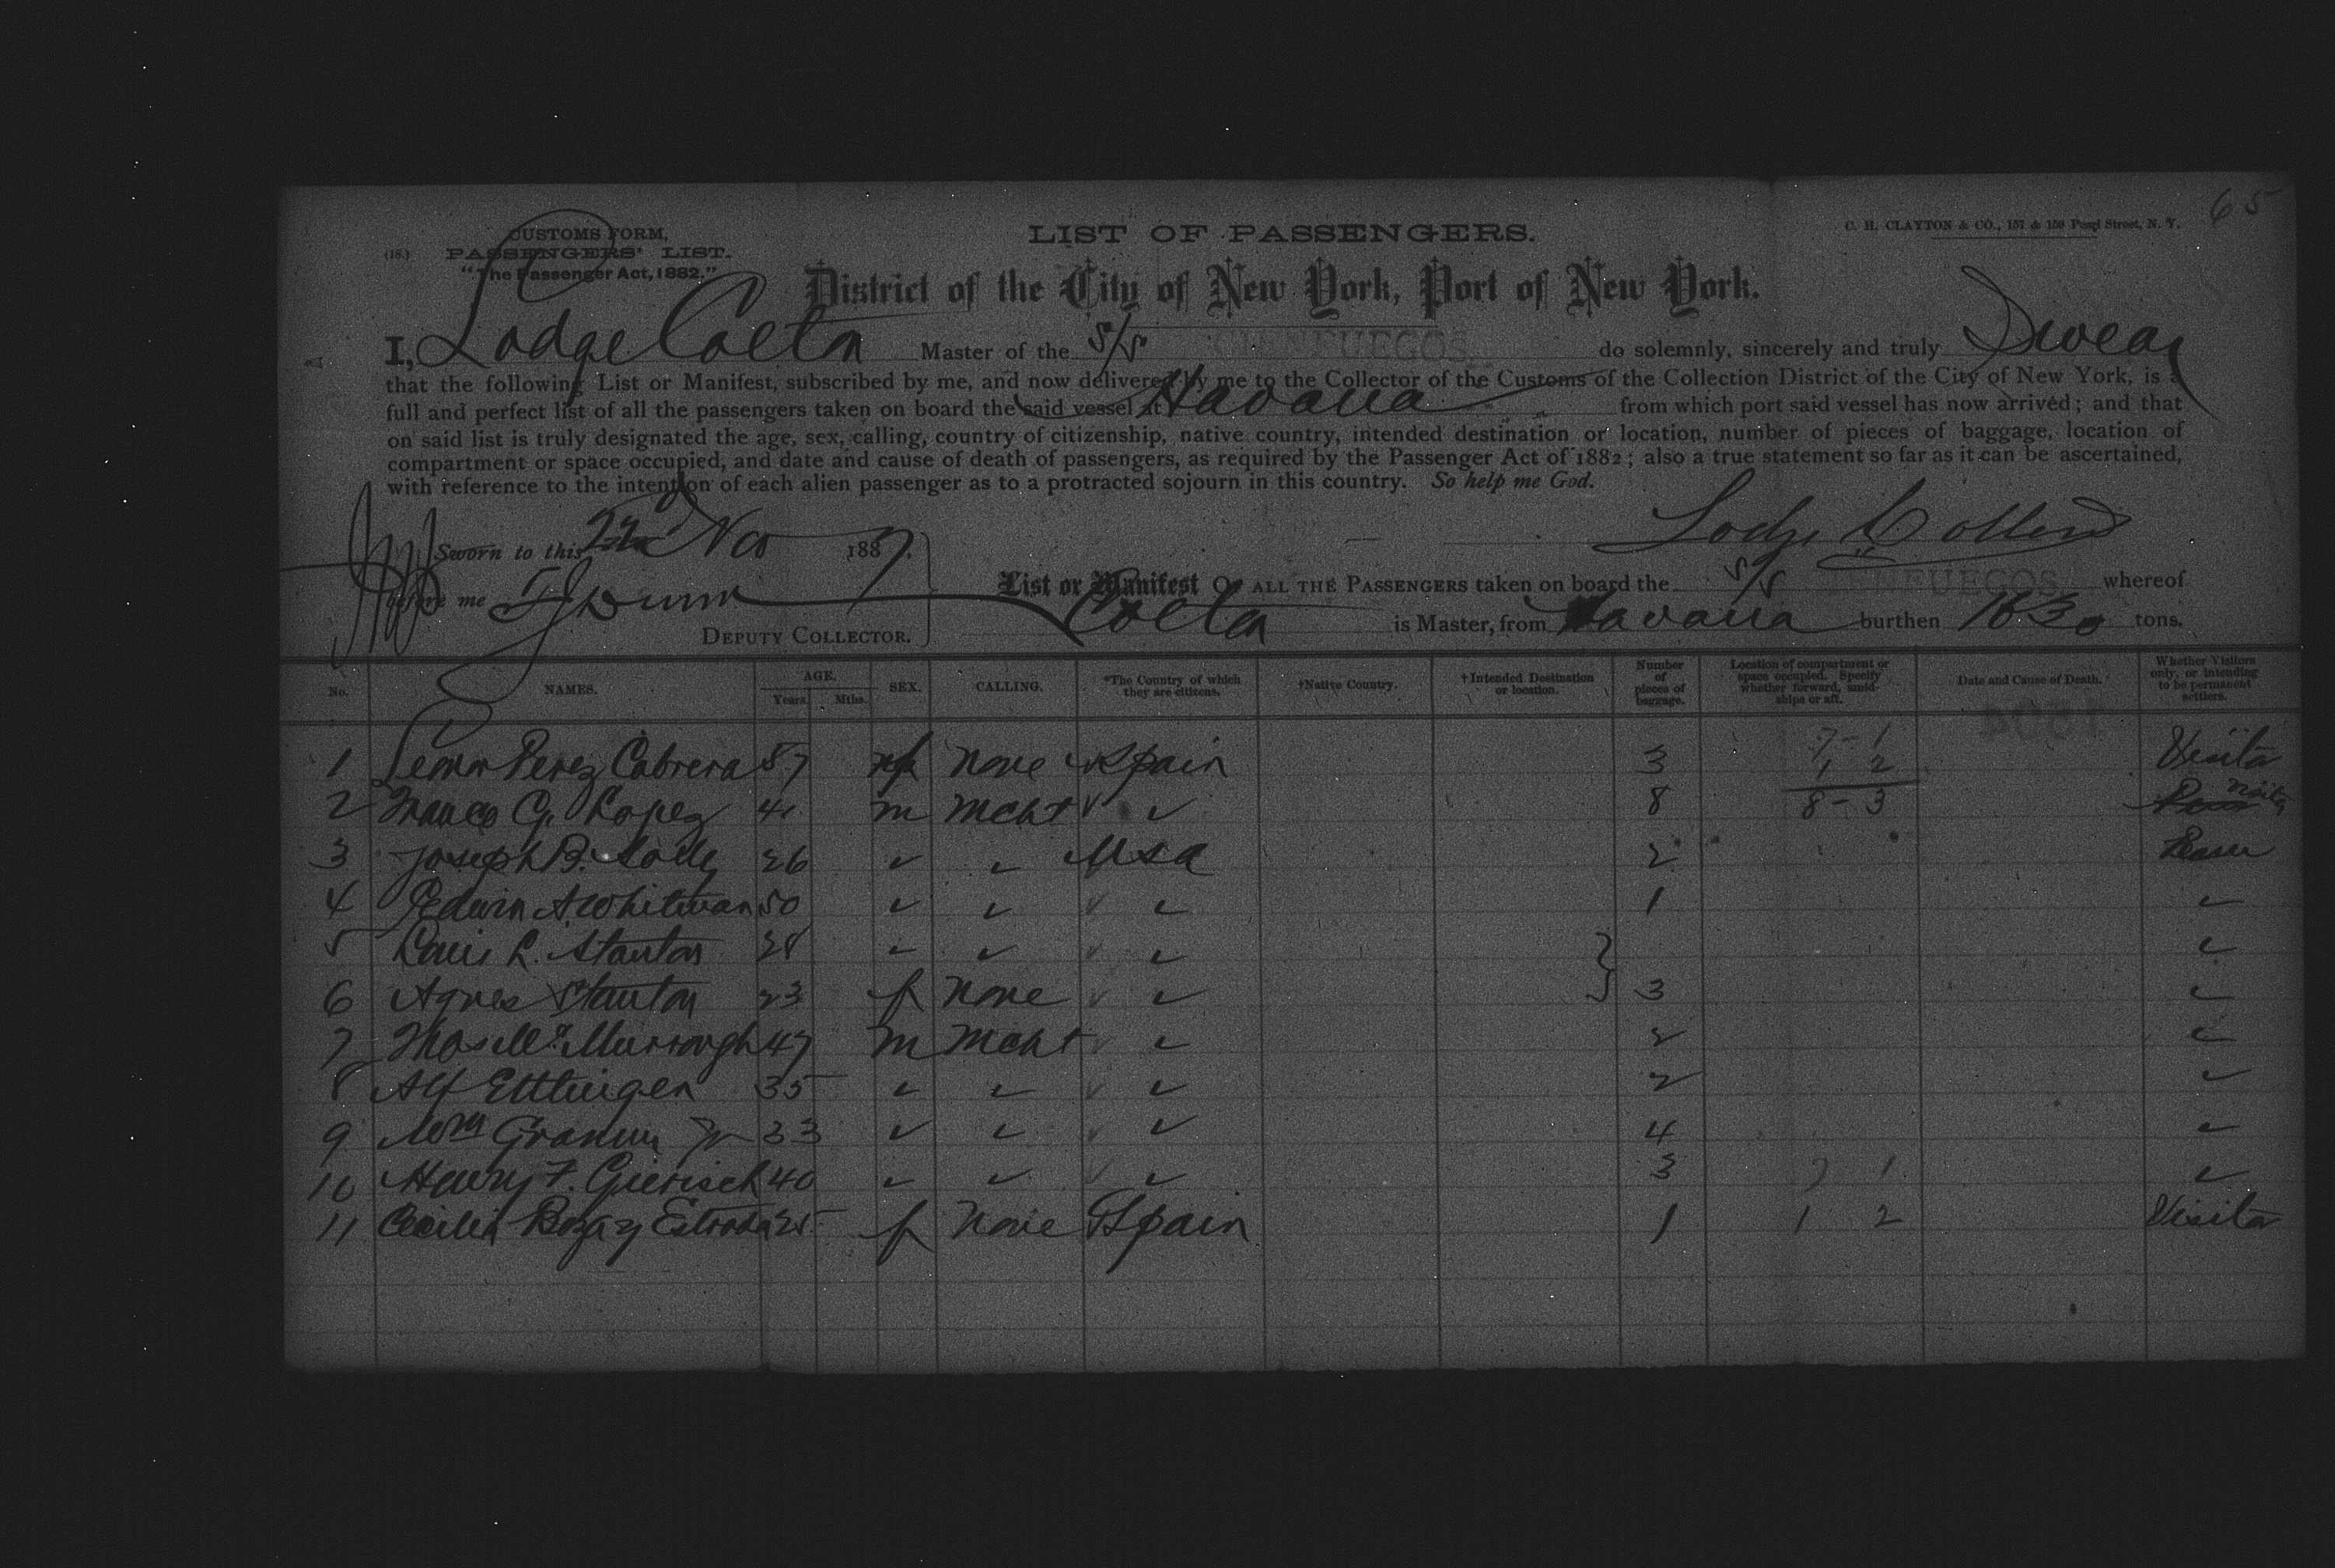 65
CUSTOMS FORM,
(18.) PASSENGERS' LIST.
"The Passenger Act, 1882."
LIST OF PASSENGERS.
C. H. CLAYTON & CO., 157 & 159 Pearl Street, N. Y.
District of the City of New York, Port of New York.
I, Lodge Colton Master of the S/S CIENFUEGOS do solemnly, sincerely and truly Swear
that the following List or Manifest, subscribed by me, and now delivered by me to the Collector of the Customs of the Collection District of the City of New York, is a
full and perfect list of all the passengers taken on board the said vessel at Havana from which port said vessel has now arrived; and that
on said list is truly designated the age, sex, calling, country of citizenship, native country, intended destination or location, number of pieces of baggage, location of
compartment or space occupied, and date and cause of death of passengers, as required by the Passenger Act of 1882; also a true statement so far as it can be ascertained,
with reference to the intention of each alien passenger as to a protracted sojourn in this country. So help me God.
Sworn to this 22nd Nov 1887.
before me
DEPUTY COLLECTOR.
List or Manifest OF ALL THE PASSENGERS taken on board the S/S CIENFUEGOS whereof
Colton is Master, from Havana burthen 1630 tons.
No. NAMES. AGE. Years Mths. SEX. CALLING. *The Country of which they are citizens. †Native Country. †Intended Destination or location. Number of pieces of baggage. Location of compartment or space occupied. Specify whether forward, amidships or aft. Date and Cause of Death. Whether Visitors only, or intending to be permanent settlers.
7-1
1 Perez Cabrera 57 f None Spain 3 1 2 Visitor
2 G. Lopez 41 m Mcht ✓ ✓ 8 8-3 Visitor
3 Joseph B. 26 ✓ ✓ USA 2
4 Edwin A Whitman 50 ✓ ✓ ✓ ✓ 1 ✓
5 Louis L. Stanton 28 ✓ ✓ ✓ ✓ ✓
6 Agnes Stanton 23 f None ✓ ✓ } 3 ✓
7 Thos Murrough 47 m Mcht ✓ ✓ 2 ✓
8 Alf Ettlinger 35 ✓ ✓ ✓ ✓ 2 ✓
9 Wm Jr 33 ✓ ✓ ✓ ✓ 4 ✓
10 Henry F. Gierisch 40 ✓ ✓ ✓ ✓ 3 7 1 ✓
11 Cecilia y Estrada 25 f None Spain 1 1 2 Visitor